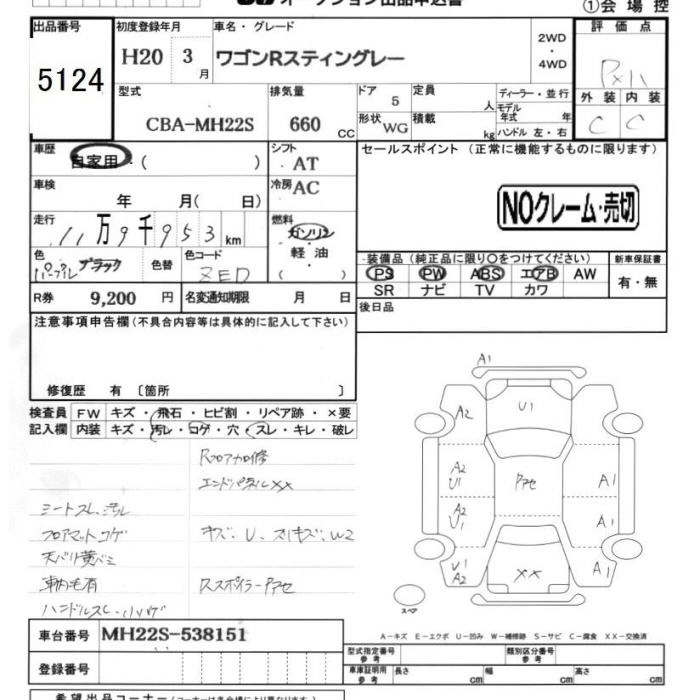 オークション出品申込書
①会場控
出品番号 初度登録年月 車名・グレード 2WD・4WD 評価点
5124 H20 3月 ワゴンRスティングレー
型式 排気量 ドア 定員 ディーラー・並行 外装 内装
CBA-MH22S 660 CC 5 人 モデル年式 年 C C
形状 WG 積載 kg ハンドル 左・右
車歴 自家用・( ) シフト AT セールスポイント (正常に機能するものに限ります)
車検 年 月( 日) 冷房 AC
NOクレーム・売切
走行 11万9千953km 燃料 ガソリン・軽油 ( )
色 パープルブラック 色替 色コード ZED
装備品 (純正品に限り○をつけてください) 新車保証書
PS PW ABS エアB AW 有・無
SR ナビ TV カワ
R券 9,200 円 名変通知期限 月 日 後日品
注意事項申告欄 (不具合内容等は具体的に記入して下さい)
修復歴 有 〔箇所 〕
検査員記入欄 FW キズ・飛石・ヒビ割・リペア跡・×要
内装 キズ・汚レ・コゲ・穴・スレ・キレ・破レ
Rフロアカロ修
エンドパネルXX
シートスレ、汚レ
フロアマットコゲ キズ、U、スリキズ、W2
天バリ黄バミ
車内毛有 Rスポイラーアセ
A1
A2 U1
A2 U1 アセ A1
A2 U1 A1
U1 A2 XX
スペア
A-キズ E-エクボ U-凹み W-補修跡 S-サビ C-腐食 XX-交換済
車台番号 MH22S-538151
型式指定番号 参考 類別区分番号 参考
登録番号 車庫証明用 参考 長さ cm 幅 cm 高さ cm
希望出品コーナー